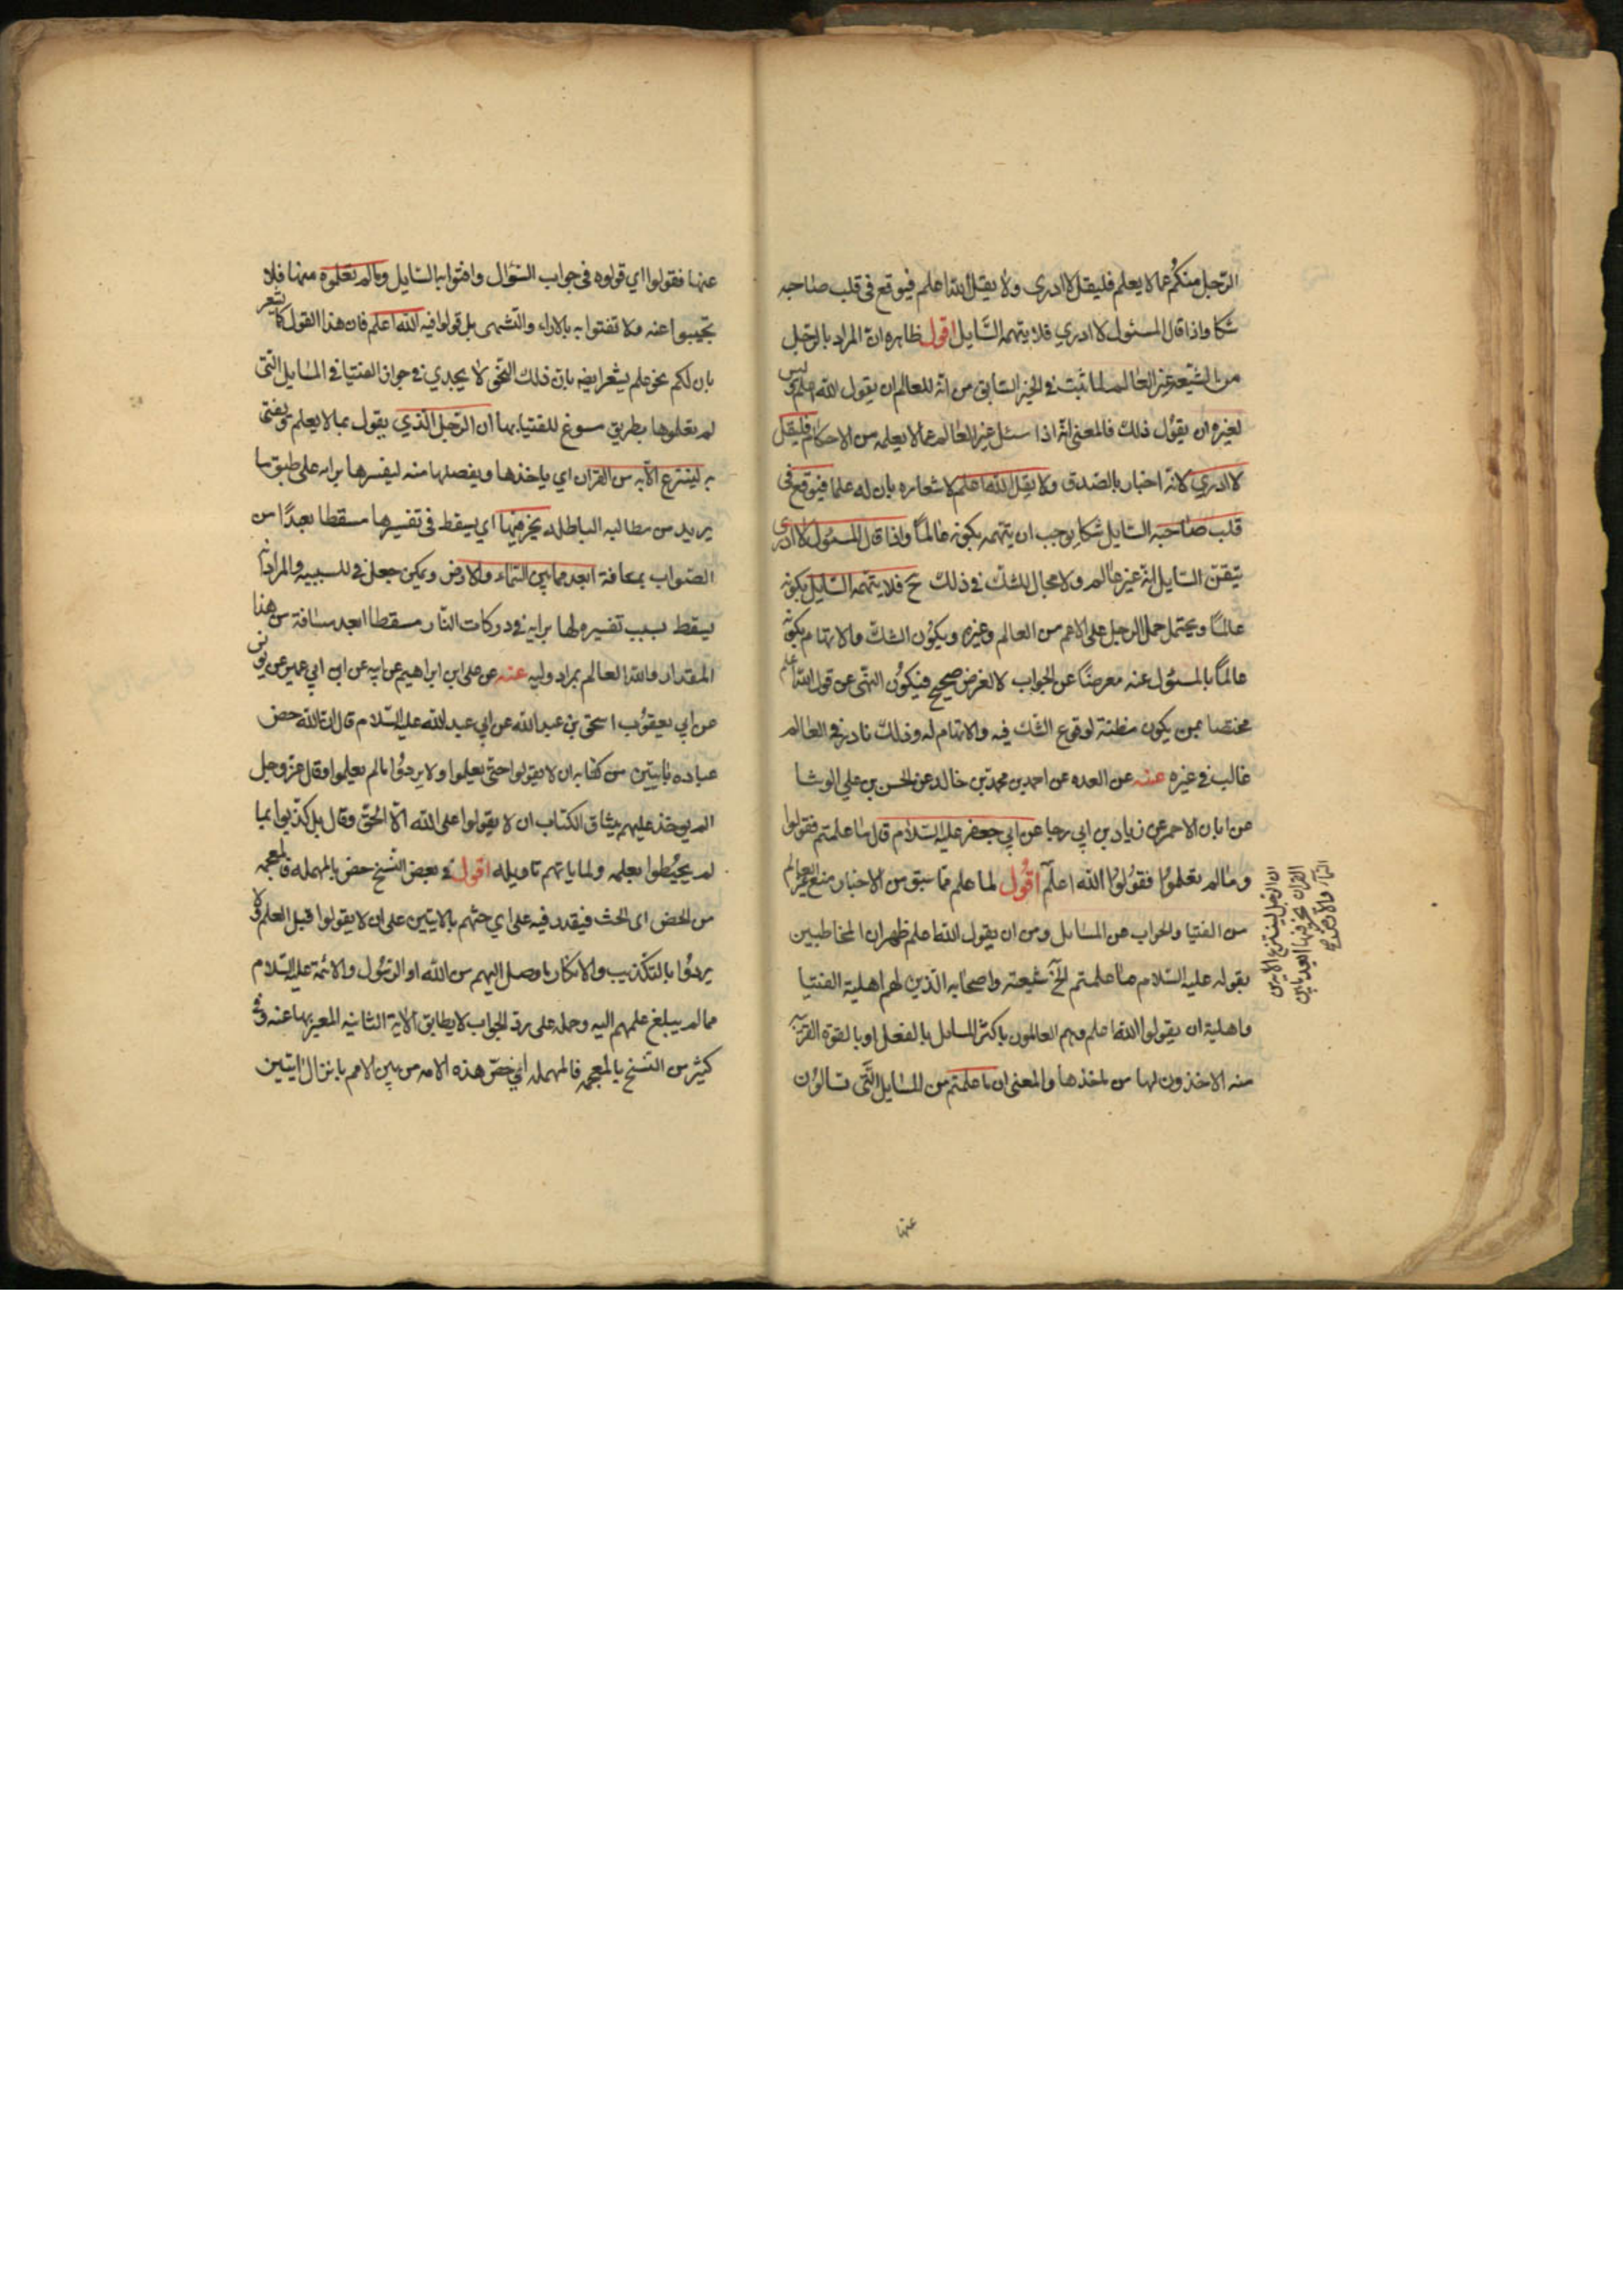 الرّجل منكم عمّا لا يعلم فليقل لا ادري ولا يقل الله اعلم فيوقع في قلب صاحبه
شكا واذا قال المسئول لا ادري فلا يتهمه السّايل اقول ظاهره انّ المراد بالرّجل
من الشيعة غير العالم لما ثبت في الخبر السّابق من انّه للعالم ان يقول الله اعلم وليس
لغيره ان يقول ذلك فالمعنى انّه اذا سئل غير العالم عمّا لا يعلمه من الاحكام فليقل
لا ادري لانّه اخبار بالصّدق ولا يقل الله اعلم لاشعاره بان له علما فيوقع في
قلب صاحبه السّايل شكا يوجب ان يتهمه بكونه عالمًا واذا قال المسئول لا ادري
تيقن السّايل انّه غير عالم ولا مجال للشك في ذلك ح فلا يتهمه السّايل بكونه
عالمًا ويحتمل حمل الرجل على الاعم من العالم وغيره ويكون الشك والاتهام بكونه
عالمًا بالمسئول عنه معرضًا عن الجواب لا لغرض صحيح فيكون النهي عن قول الله اعلم
مختصا بمن يكون مظنة لوقوع الشك فيه والاتهام له وذلك نادر في العالم
غالب في غيره عنه عن العده عن احمد بن محمد بن خالد عن الحسن بن علي الوشا
عن ابان الاحمر عن زياد بن ابي رجا عن ابي جعفر عليه السّلام قال ما علمتم فقولوا
وما لم تعلموا فقولوا الله اعلم اقول لما علم مما سبق من الاخبار منع غير العالم
من الفتيا والجواب عن المسائل ومن ان يقول الله اعلم ظهر ان المخاطبين
بقوله عليه السّلام ما علمتم الخ شيعته واصحابه الذين لهم اهلية الفتيا
واهلية ان يقولوا الله اعلم وهم العالمون باكثر المسائل بالفعل او بالقوة القريبة
منه الاخذون لها من ماخذها والمعنى ان ما علمتم من المسايل الّتى تسالون
ان الرجل لينتزع الاية من
القران يخر فيها ابعد ما بين
السّماء والارض
عنها
عنها فقولوا اي قولوه في جواب السّؤال وافتوا به السّايل وما لم تعلموه منها فلا
تجيبوا عنه ولا تفتوا به بالاراء والتّشهى بل قولوا فيه الله اعلم فان هذا القول كما يشعر
بان لكم نحو علم يشعر ايضا بان ذلك النحو لا يجدي في جواز الفتيا في المسايل التّى
لم تعلموها بطريق مسوغ للفتيا بها ان الرّجل الّذي يقول بما لا يعلم ويفتى
به لينتزع الآية من القران اي ياخذها ويفصلها منه ليفسرها برايه على طبق ما
يريد من مطالبه الباطله يخر فيها اي يسقط في تفسيرها مسقطا بعيدًا من
الصّواب بمسافة ابعد مما بين السّماء والارض ويمكن جعل في للسببيه والمراد انه
يسقط بسبب تفسيره لها برايه في دركات النّار مسقطا ابعد مسافة من هذا
المقدار والله العالم بمراد وليه عنه عن على بن ابراهيم عن ابيه عن ابن ابي عمير عن يونس
عن ابي يعقوب اسحق بن عبد الله عن ابي عبد الله عليه السّلام قال ان الله حض
عباده بايتين من كتابه ان لا يقولوا حتى يعلموا ولا يردّوا ما لم يعلموا وقال عز وجل
الم يوخذ عليهم ميثاق الكتاب ان لا يقولوا على الله الا الحق وقال بل كذبوا بما
لم يحيطوا بعلمه ولما ياتهم تاويله اقول في بعض النّسخ حض بالمهمله فالمعجمه
من الحض اى الحث فيقدر فيه على اي حثهم بالايتين على ان لا يقولوا قبل العلم ولا
يردّوا بالتكذيب والانكار ما وصل اليهم من الله او الرّسول والائمة عليهم السّلام
مما لم يبلغ علمهم اليه وحمله على رد الجواب لا يطابق الاية الثانيه المعبر بها عنه وفي
كثير من النسخ بالمعجمه فالمهمله اي خصّ هذه الامه من بين الامم بانزال ايتين